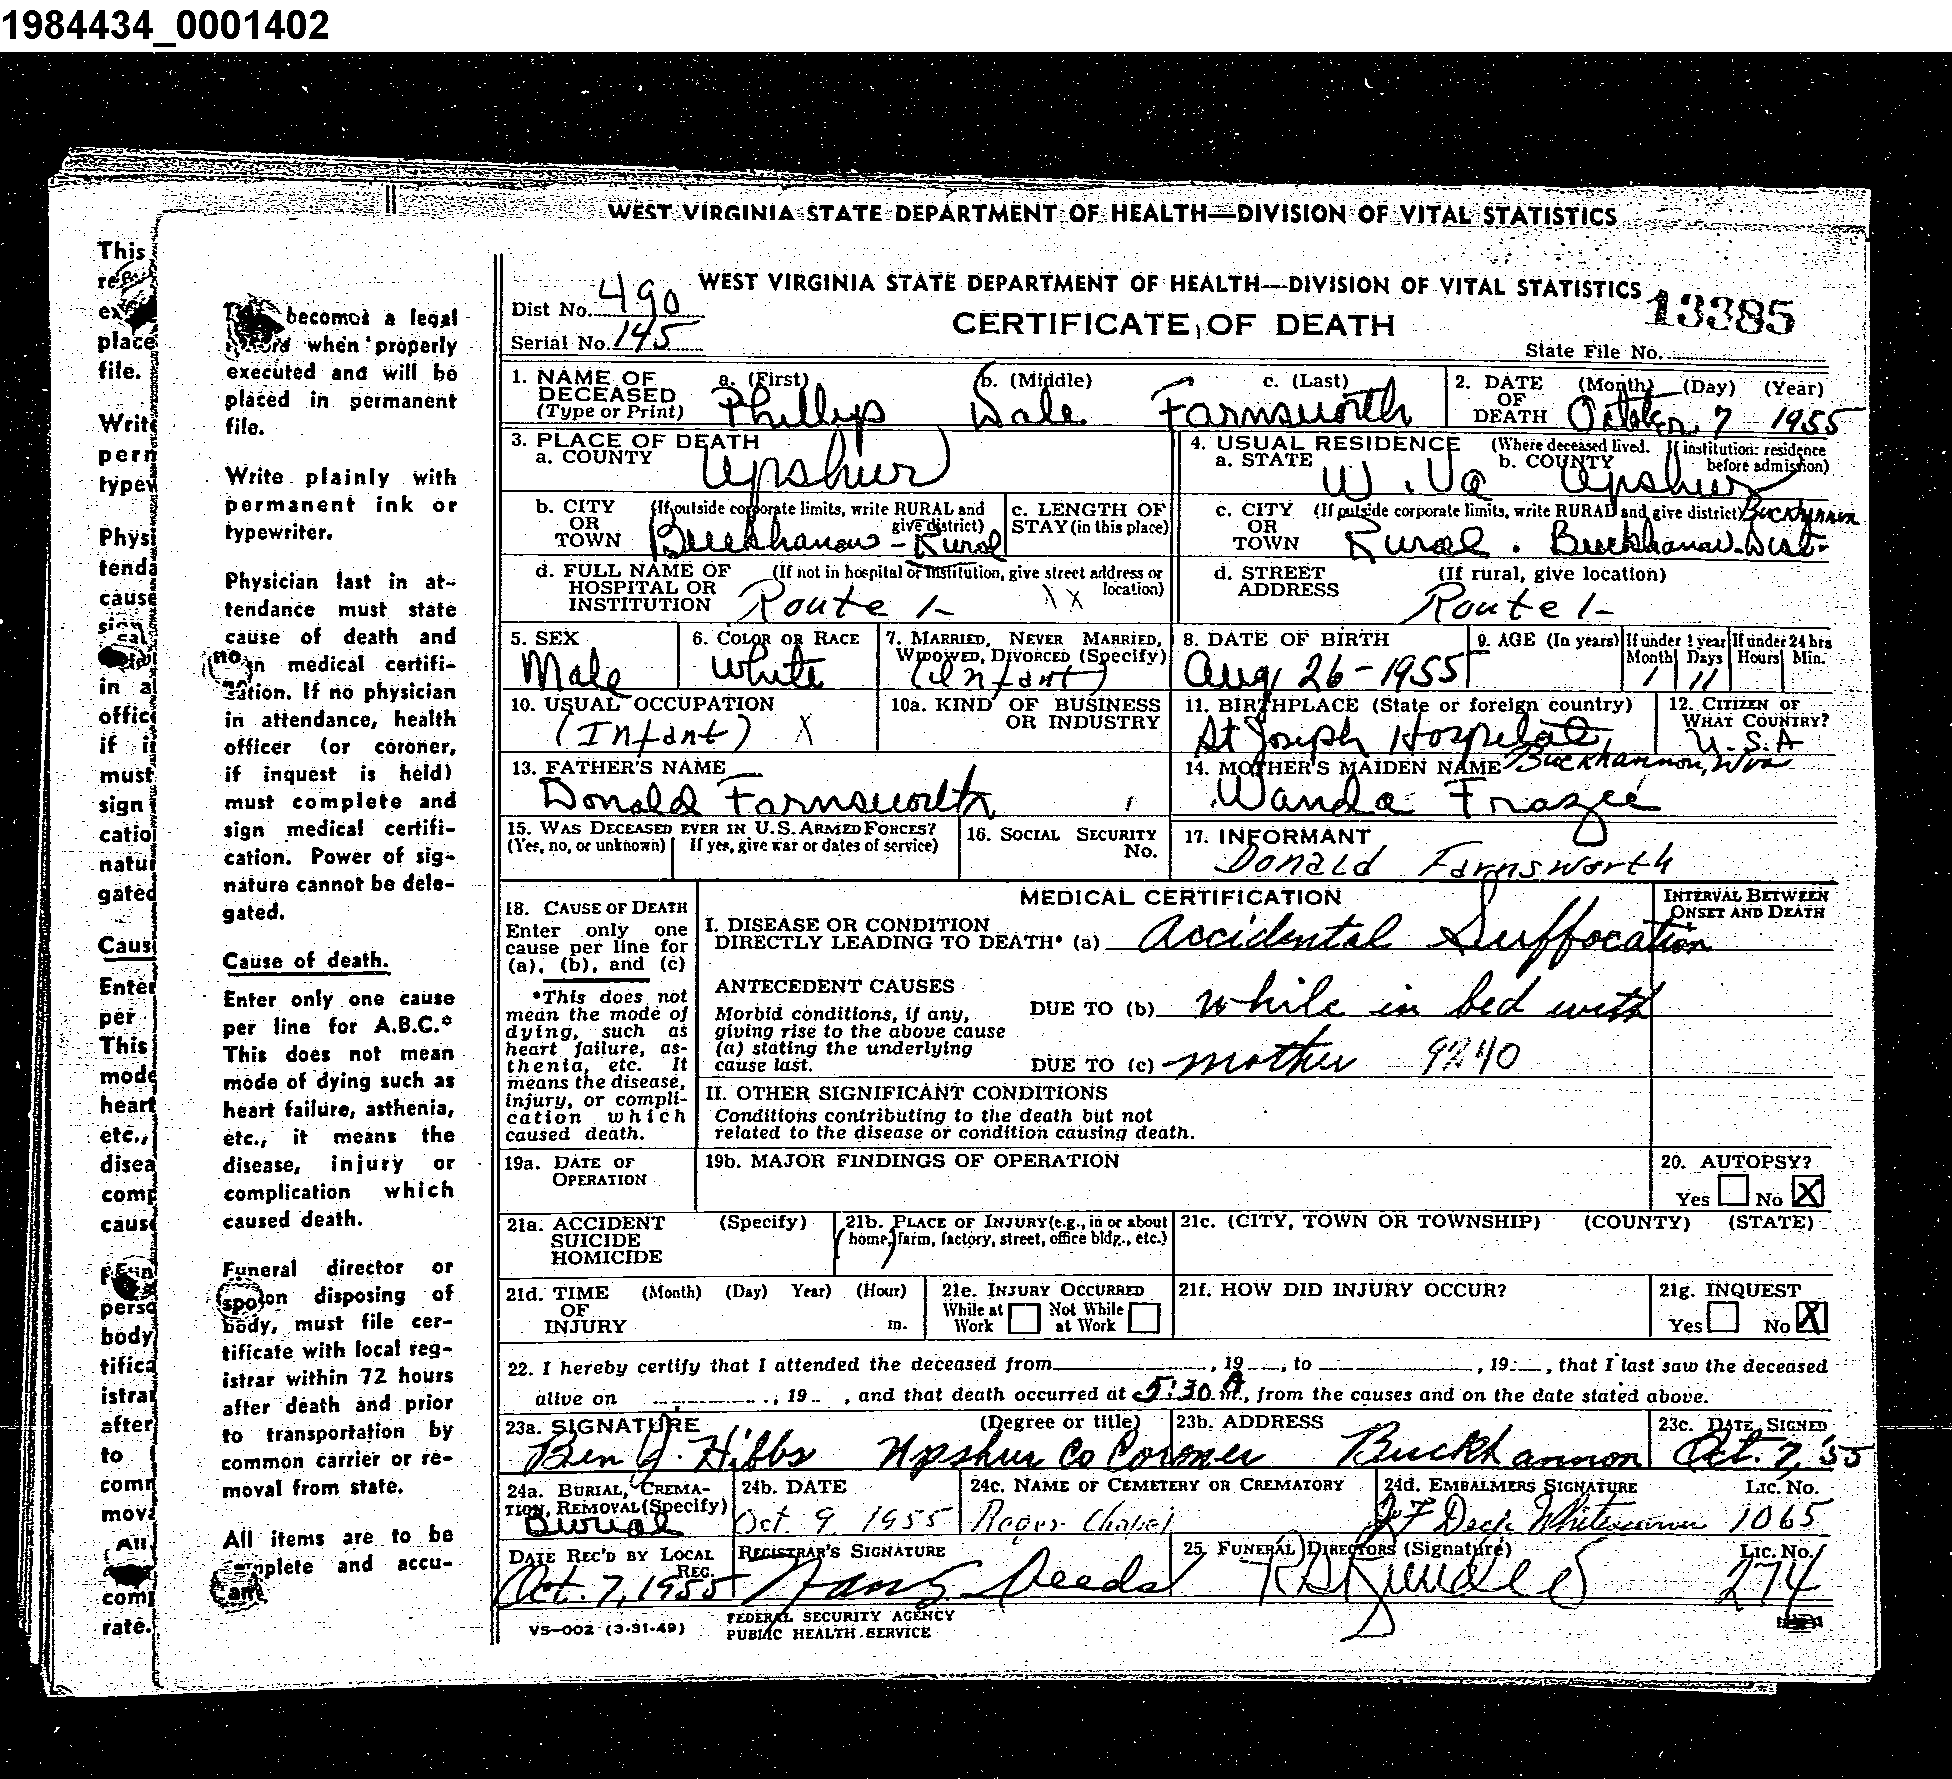 1984434_0001402
WEST VIRGINIA STATE DEPARTMENT OF HEALTH—DIVISION OF VITAL STATISTICS
This
place
file.
Write
perm
typew
Physi
tenda
cause
in a
office
if i
must
sign
catio
natu
gated
Caus
Enter
per
This
mode
heart
etc.,
disea
comp
cause
perso
body
tifica
istrar
after
to
comm
mova
All
comp
rate.
becomes a legal
record when properly
executed and will be
placed in permanent
file.
Write plainly with
permanent ink or
typewriter.
Physician last in at-
tendance must state
cause of death and
sign medical certifi-
cation. If no physician
in attendance, health
officer (or coroner,
if inquest is held)
must complete and
sign medical certifi-
cation. Power of sig-
nature cannot be dele-
gated.
Cause of death.
Enter only one cause
per line for A.B.C.*
This does not mean
mode of dying such as
heart failure, asthenia,
etc., it means the
disease, injury or
complication which
caused death.
Funeral director or
person disposing of
body, must file cer-
tificate with local reg-
istrar within 72 hours
after death and prior
to transportation by
common carrier or re-
moval from state.
All items are to be
complete and accu-
WEST VIRGINIA STATE DEPARTMENT OF HEALTH—DIVISION OF VITAL STATISTICS
Dist No. 490
13385
CERTIFICATE OF DEATH
Serial No. 145
State File No.
1. NAME OF DECEASED (Type or Print) a. (First) Phillip b. (Middle) Dale c. (Last) Farnsworth
2. DATE OF DEATH (Month) (Day) (Year) October 7 1955
3. PLACE OF DEATH
a. COUNTY Upshur
4. USUAL RESIDENCE (Where deceased lived. If institution: residence before admission)
a. STATE W. Va b. COUNTY Upshur
b. CITY OR TOWN (If outside corporate limits, write RURAL and give district) Buckhanon - Rural
c. LENGTH OF STAY (in this place)
c. CITY OR TOWN (If outside corporate limits, write RURAL and give district) Buckhannon
Rural. Buckhanon Dist.
d. FULL NAME OF HOSPITAL OR INSTITUTION (If not in hospital or institution, give street address or location) Route 1- XX
d. STREET ADDRESS (If rural, give location) Route 1-
5. SEX Male
6. COLOR OR RACE White
7. MARRIED, NEVER MARRIED, WIDOWED, DIVORCED (Specify) (Infant)
8. DATE OF BIRTH Aug, 26-1955
9. AGE (In years) If under 1 year Month 1 Days 11 If under 24 hrs Hours Min.
10. USUAL OCCUPATION (Infant) X
10a. KIND OF BUSINESS OR INDUSTRY
11. BIRTHPLACE (State or foreign country) St Joseph Hospital, Buckhannon, Wva
12. CITIZEN OF WHAT COUNTRY? U.S.A
13. FATHER'S NAME Donald Farnsworth
14. MOTHER'S MAIDEN NAME Wanda Frazee
15. WAS DECEASED EVER IN U.S. ARMED FORCES? (Yes, no, or unknown) If yes, give war or dates of service)
16. SOCIAL SECURITY No.
17. INFORMANT Donald Farnsworth
18. CAUSE OF DEATH
Enter only one
cause per line for
(a), (b), and (c)
*This does not
mean the mode of
dying, such as
heart failure, as-
thenia, etc. It
means the disease,
injury, or compli-
cation which
caused death.
MEDICAL CERTIFICATION
INTERVAL BETWEEN ONSET AND DEATH
I. DISEASE OR CONDITION
DIRECTLY LEADING TO DEATH* (a) Accidental Suffocation
ANTECEDENT CAUSES
Morbid conditions, if any,
giving rise to the above cause
(a) stating the underlying
cause last.
DUE TO (b) while in bed with
DUE TO (c) mother 9240
II. OTHER SIGNIFICANT CONDITIONS
Conditions contributing to the death but not
related to the disease or condition causing death.
19a. DATE OF OPERATION
19b. MAJOR FINDINGS OF OPERATION
20. AUTOPSY?
Yes No X
21a. ACCIDENT SUICIDE HOMICIDE (Specify)
21b. PLACE OF INJURY (e.g., in or about home, farm, factory, street, office bldg., etc.)
21c. (CITY, TOWN OR TOWNSHIP) (COUNTY) (STATE)
21d. TIME OF INJURY (Month) (Day) Year) (Hour) m.
21e. INJURY OCCURRED While at Work Not While at Work
21f. HOW DID INJURY OCCUR?
21g. INQUEST
Yes No X
22. I hereby certify that I attended the deceased from , 19 , to , 19 , that I last saw the deceased
alive on , 19 , and that death occurred at 5:30 A m., from the causes and on the date stated above.
23a. SIGNATURE (Degree or title) Ben J. Hibbs Upshur Co Coroner
23b. ADDRESS Buckhannon
23c. DATE SIGNED Oct. 7, '55
24a. BURIAL, CREMATION, REMOVAL (Specify) Burial
24b. DATE Oct. 9 1955
24c. NAME OF CEMETERY OR CREMATORY Chapel
24d. EMBALMERS SIGNATURE Lic. No. 1065
DATE REC'D BY LOCAL REG. Oct. 7, 1955
REGISTRAR'S SIGNATURE
25. FUNERAL DIRECTORS (Signature) Lic. No. 274
VS-002 (3-31-49)
FEDERAL SECURITY AGENCY
PUBLIC HEALTH SERVICE